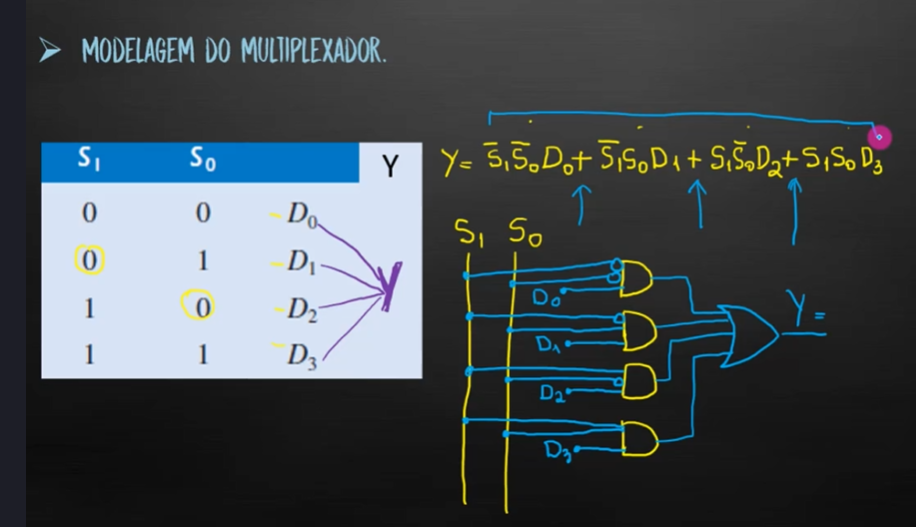 ➤ MODELAGEM DO MULTIPLEXADOR.
S₁ S₀ Y
0 0 D₀
0 1 D₁
1 0 D₂
1 1 D₃
Y
Y= S̅₁S̅₀D₀+ S̅₁S₀D₁+ S₁S̅₀D₂+S₁S₀D₃
S₁ S₀
D₀
D₁
D₂
D₃
Y=